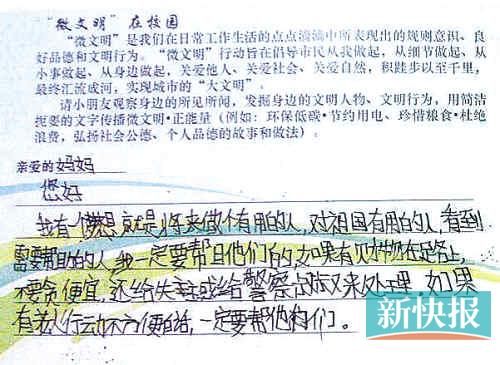 “微文明”在校园
“微文明”是我们在日常工作生活的点点滴滴中所表现出的规则意识、良
好品德和文明行为。“微文明”行动旨在倡导市民从我做起,从细节做起、从
小事做起、从身边做起,关爱他人、关爱社会、关爱自然,积跬步以至千里,
最终汇流成河,实现城市的“大文明”。
请小朋友观察身边的所见所闻,发掘身边的文明人物、文明行为,用简洁
扼要的文字传播微文明·正能量(例如:环保低碳·节约用电、珍惜粮食·杜绝
浪费,弘扬社会公德、个人品德的故事和做法):
亲爱的妈妈
您好
我有个梦想就是将来做个有用的人,对祖国有用的人,看到
需要帮助的人,我一定要帮助他们的,如果有财物在路上,
不要贪便宜,还给失主或给警察叔叔来处理,如果
有老人行动不方便的话,一定要帮他们。
新快报